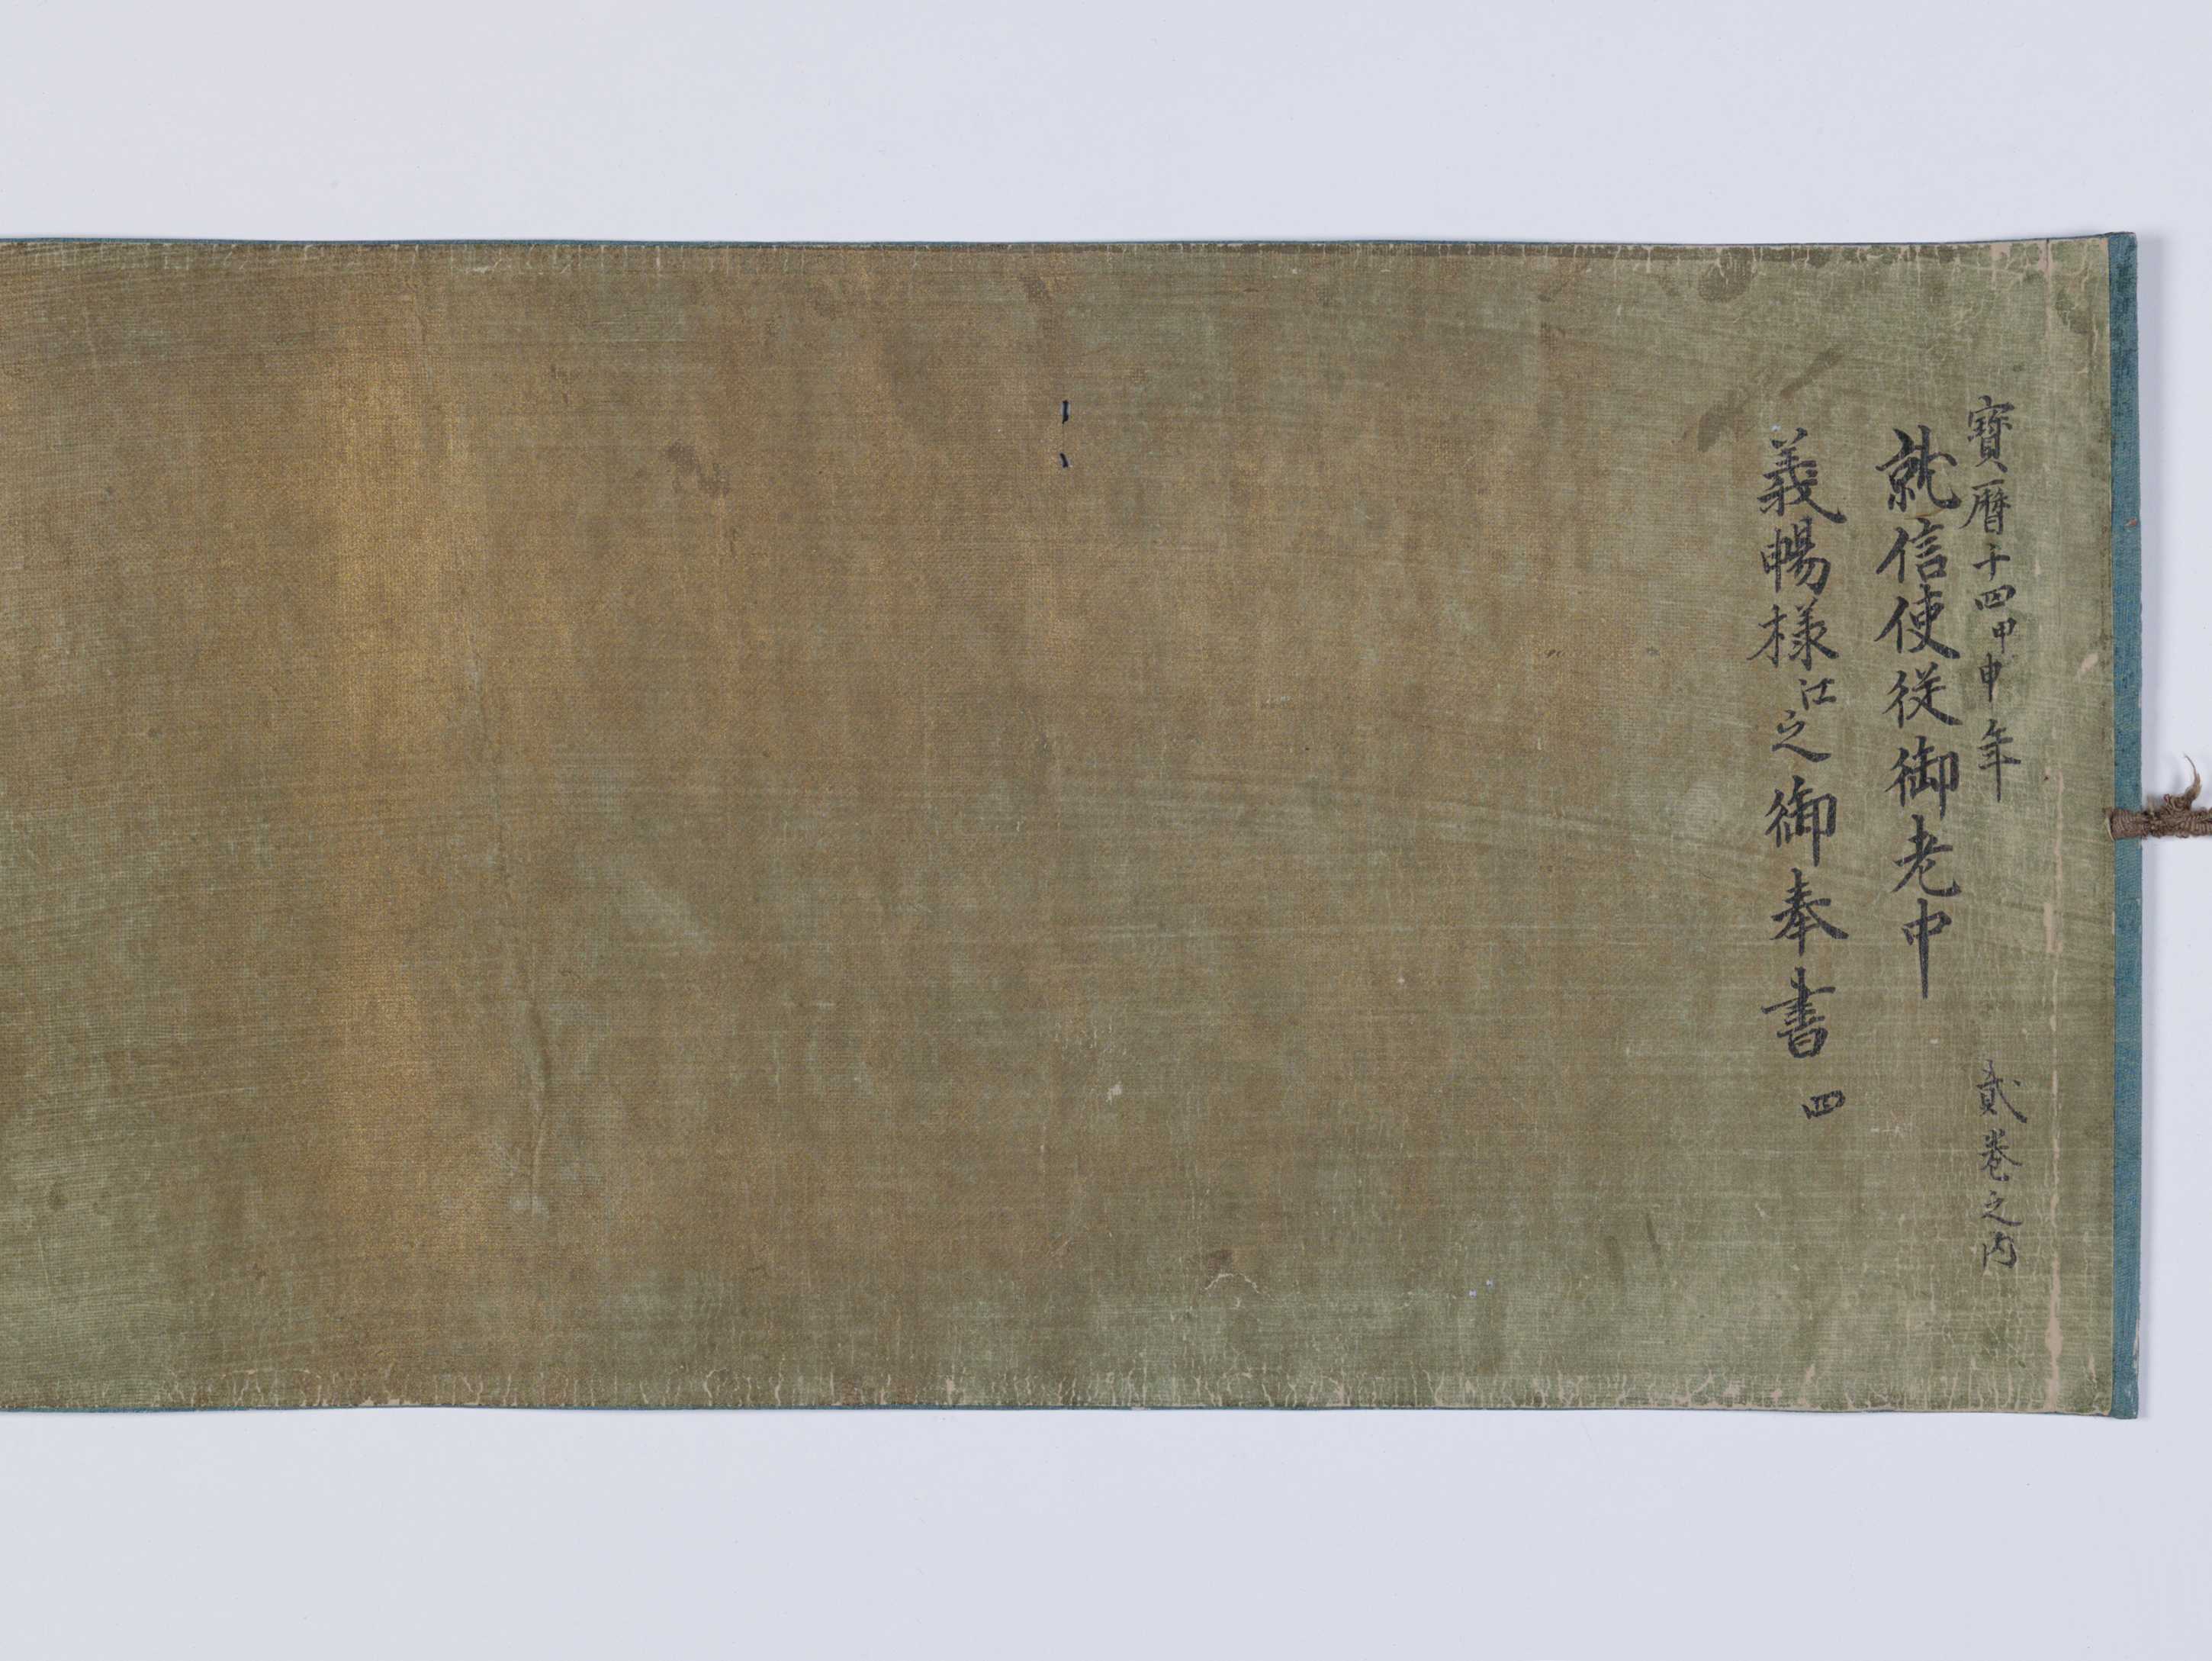 寶暦十四甲申年
貮卷之内
就信使従御老中
義暢様江之御奉書 四